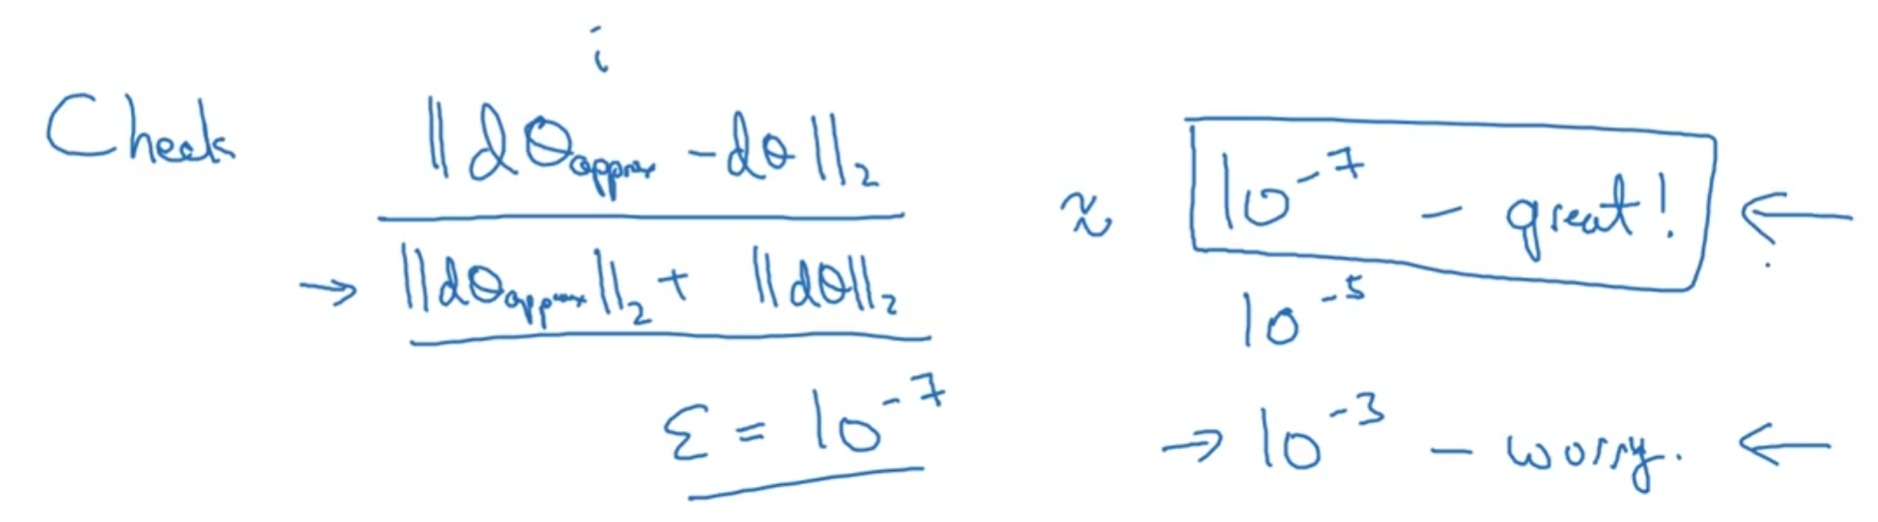 i
Check ||dθapprox - dθ||₂
→ ||dθapprox||₂ + ||dθ||₂
≈ 10⁻⁷ - great! ←
10⁻⁵
ε = 10⁻⁷
→ 10⁻³ - worry. ←